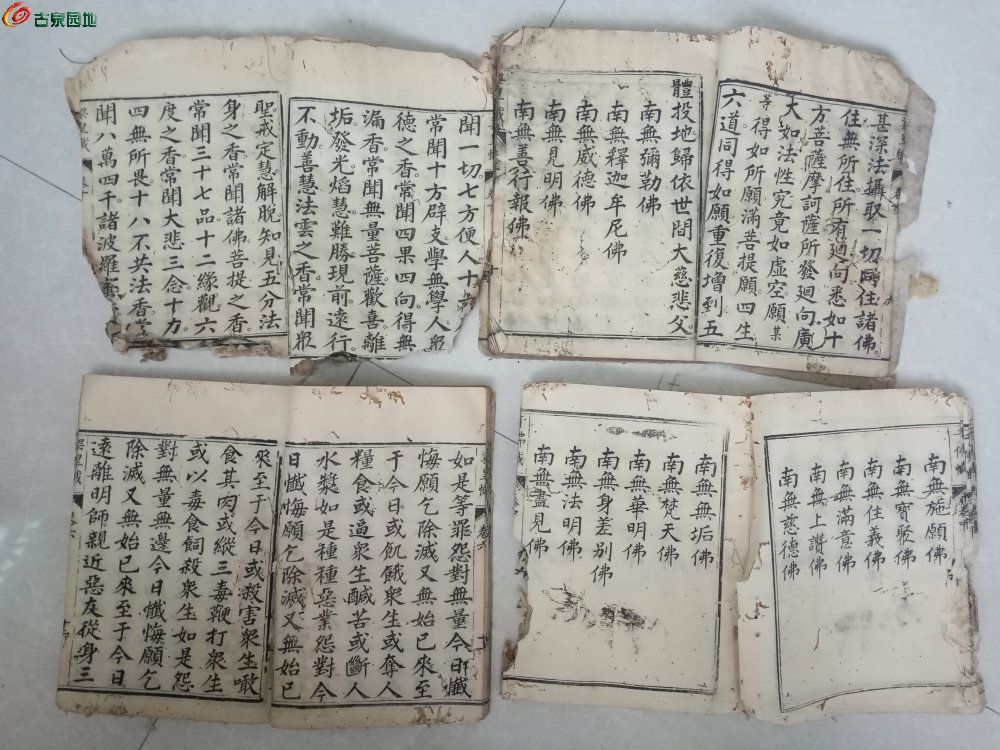 古泉园地
聞一切七方便人十
常聞十方辟支學無學人眾
德之香常聞四果四向得無
漏香常聞無量菩薩歡喜離
垢發光焰慧難勝現前遠行
不動善慧法雲之香常聞眾
聖戒定慧解脫知見五分法
身之香常聞諸佛菩提之香
常聞三十七品十二緣觀六
度之香常聞大悲三念十力
四無所畏十八不共法香常
聞八萬四千諸波羅
甚深法攝取一切同住諸佛
住無所住所有迴向悉如十
方菩薩摩訶薩所發迴向廣
大如法性究竟如虛空願某
等得如所願滿菩提願四生
六道同得如願重復增到五
體投地歸依世間大慈悲父
南無彌勒佛
南無釋迦牟尼佛
南無威德佛
南無見明佛
南無善行報佛
卷六
如是等罪怨對無量今日懺
悔願乞除滅又無始已來至
于今日或飢餓眾生或奪人
糧食或逼眾生鹹苦或斷人
水漿如是種種惡業怨對今
日懺悔願乞除滅又無始已
來至于今日或殺害眾生噉
食其肉或縱三毒鞭打眾生
或以毒食飼殺眾生如是怨
對無量無邊今日懺悔願乞
除滅又無始已來至于今日
遠離明師親近惡友從身三
梁皇懺
南無施願佛
南無寶聚佛
南無住義佛
南無滿意佛
南無上讚佛
南無慈德佛
南無無垢佛
南無梵天佛
南無華明佛
南無身差別佛
南無法明佛
南無盡見佛